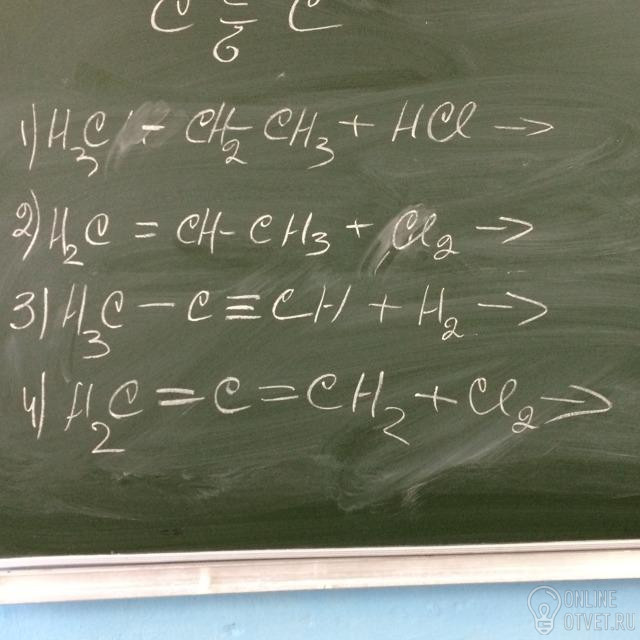 C = C
б
1) H₃C - CH₂ - CH₃ + HCl →
2) H₂C = CH - CH₃ + Cl₂ →
3) H₃C - C ≡ CH + H₂ →
4) H₂C = C = CH₂ + Cl₂ →
ONLINE
OTVET.RU